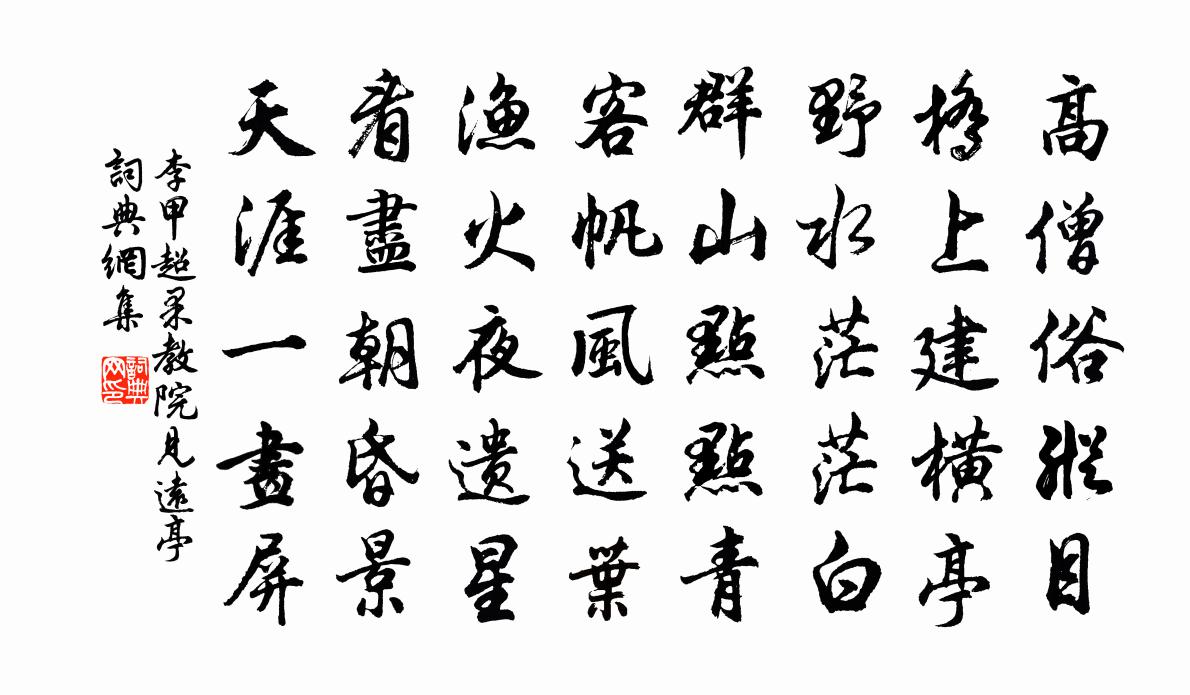 高僧俗縱目
橋上建橫亭
野水茫茫白
群山點點青
客帆風送葉
漁火夜遺星
看盡朝昏景
天涯一畫屏
李甲超果教院見遠亭
詞典網集
詞典网印